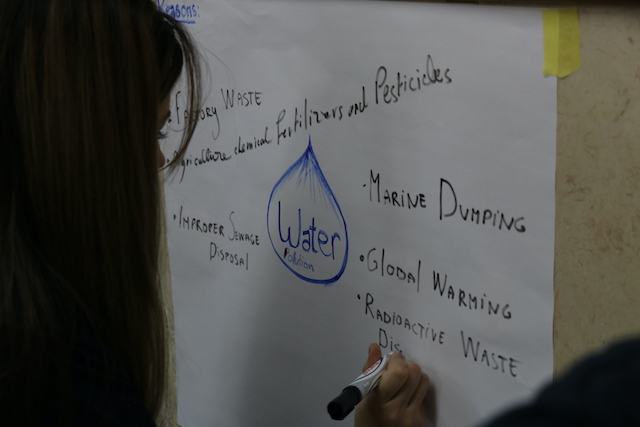 Reasons:
• Factory Waste
• Agriculture chemical Fertilizers and Pesticides
• Improper Sewage
Disposal
Water
Polution
• Marine Dumping
• Global Warming
• Radioactive Waste
Dis